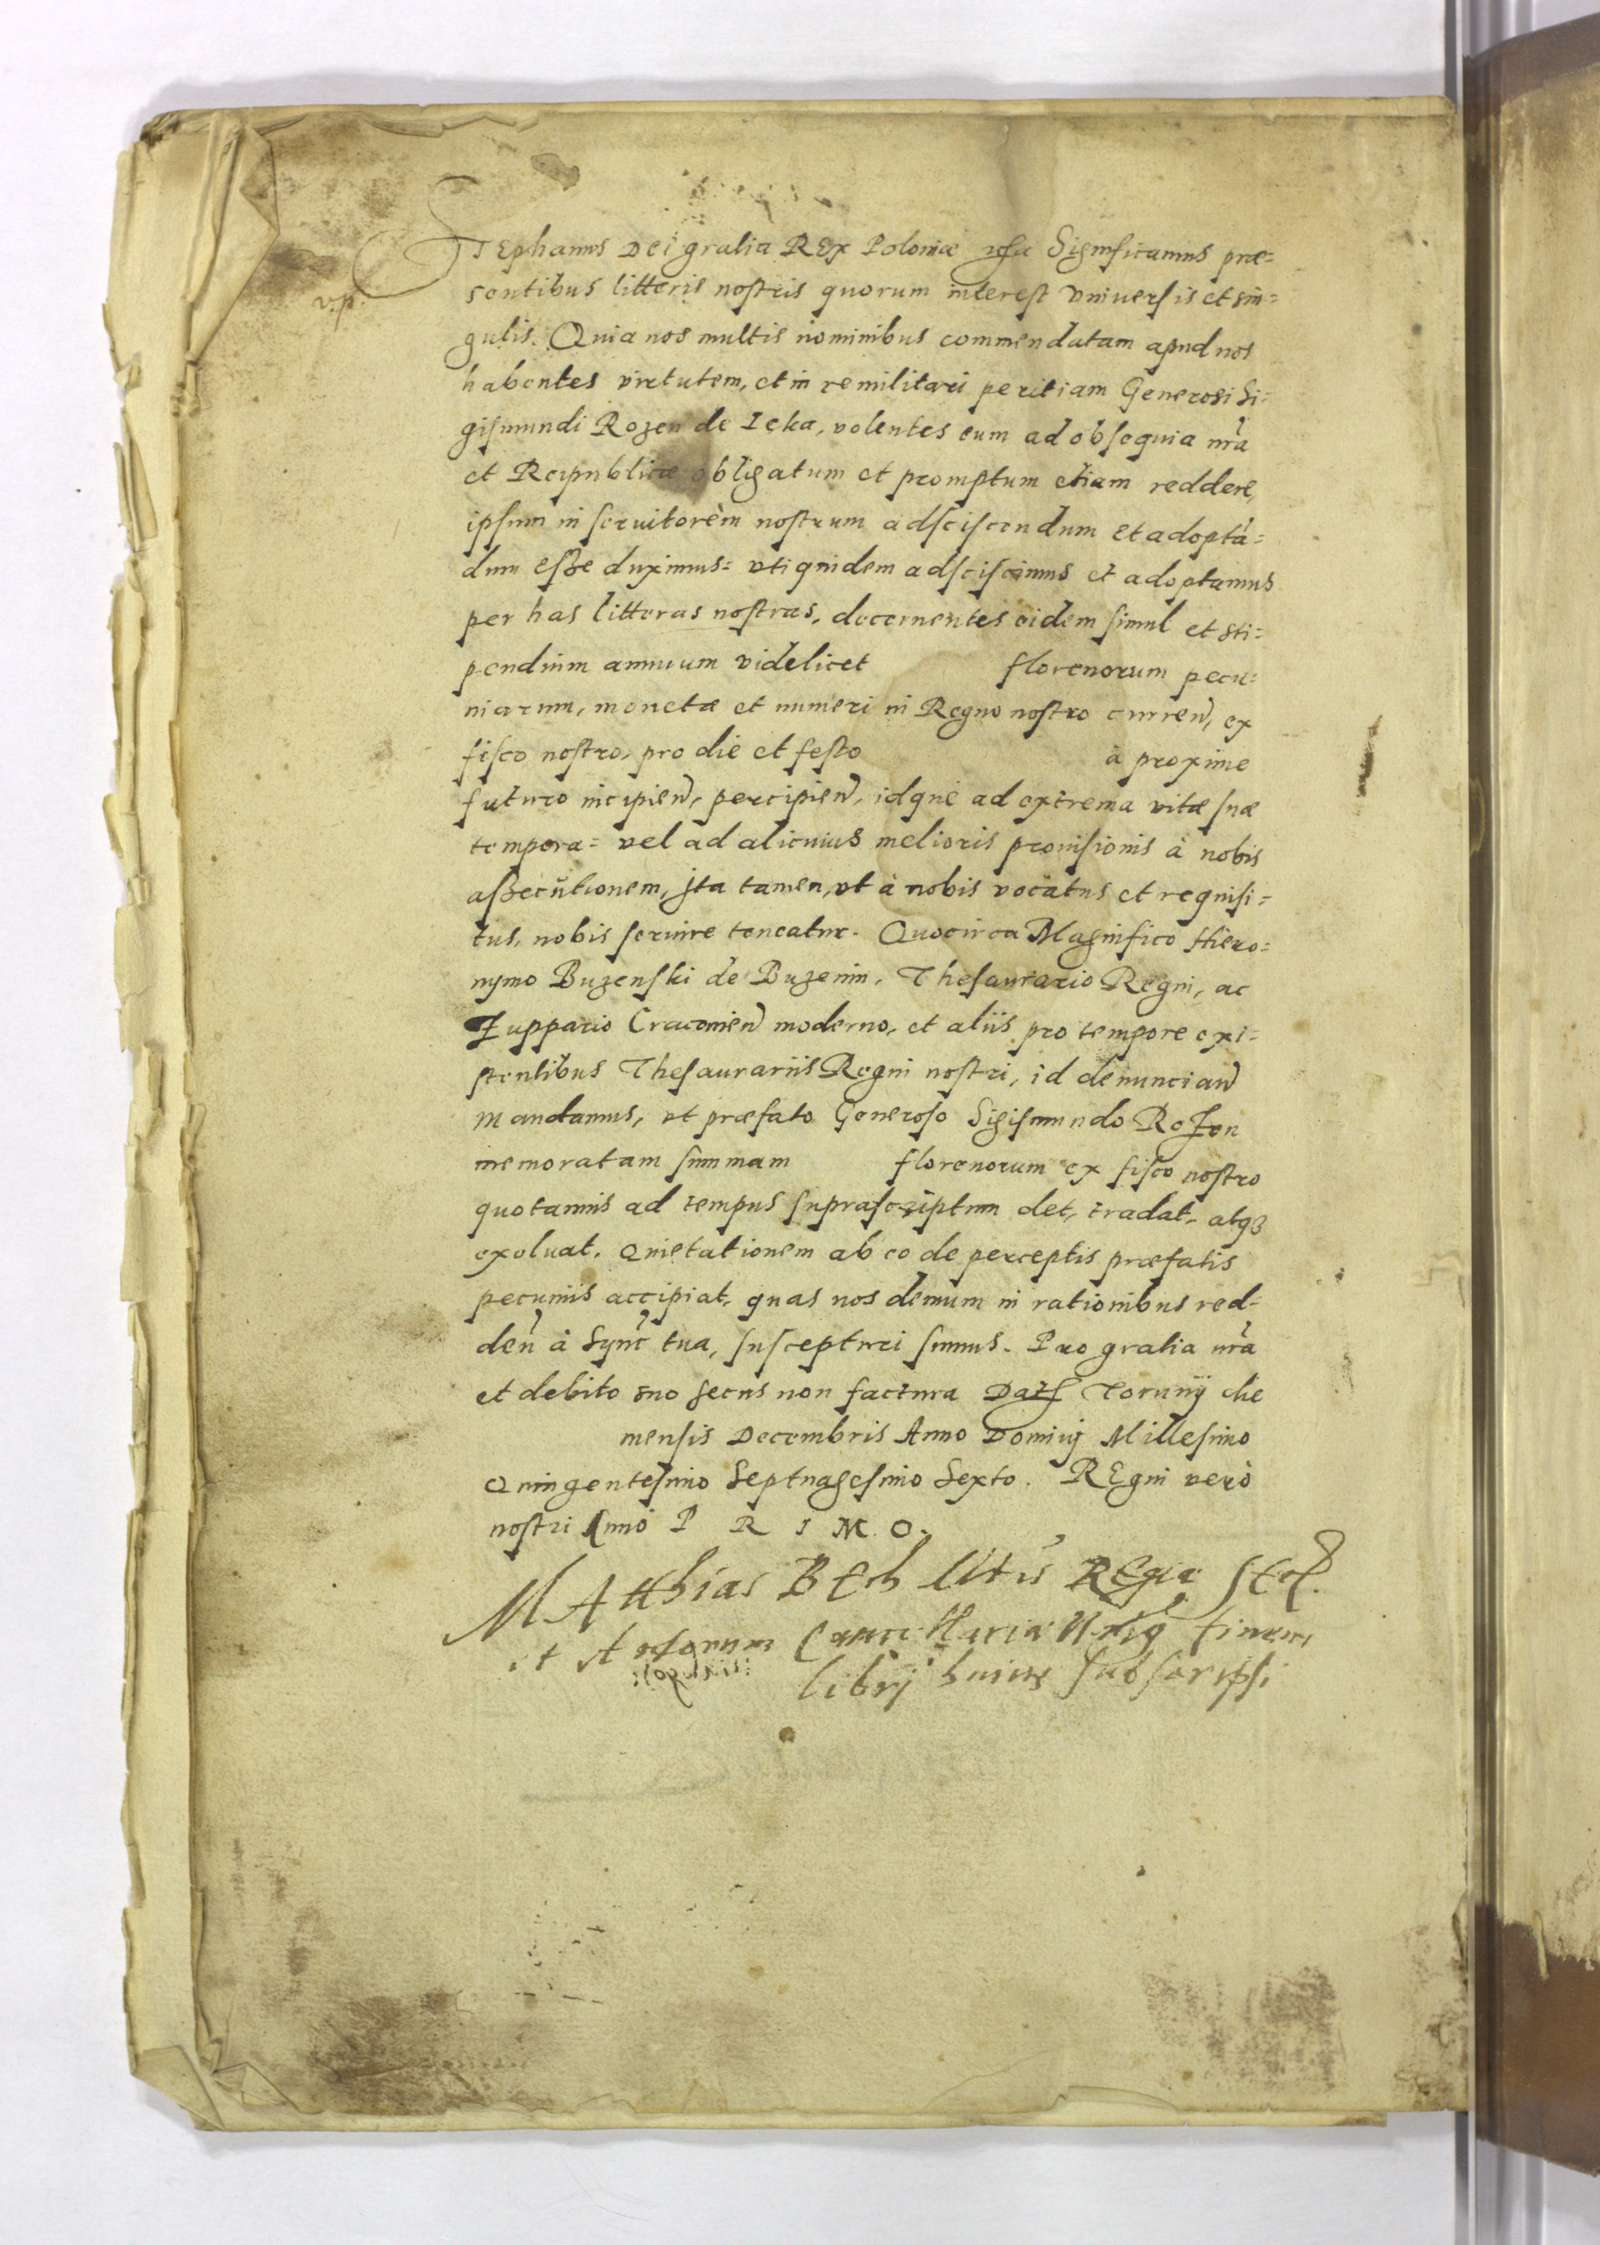 STEphanus Dei gratia REx Poloniæ etc Significamus præ=
v.p.
sentibus litteris nostris quorum interest vniversis et sin=
gulis. Quia nos multis nominibus commendatam apud nos
habentes virtutem, et in re militari peritiam Generosi Si=
gismundi Rozen de Icka, volentes eum ad obsequia nr̃a
et Reipublicæ obligatum et promptum etiam reddere,
ipsum in servitorem nostrum adsciscendum et adoptã=
dum esse duximus= vti quidem adsciscimus et adoptamus
per has litteras nostras, decernentes eidem simul et sti=
pendium annuum videlicet florenorum pecu=
niarum, monetæ et numeri in Regno nostro curren̄, ex
fisco nostro, pro die et festo à proxime
futuro incipien̄, percipien̄, idque ad extrema vitæ suæ
tempora= vel ad alicuius melioris provisionis à nobis
assecutionem, jta tamen, vt à nobis vocatus et requisi=
tus, nobis servire teneatur. Quocirca Magnifico Hiero=
nymo Buzenski de Buzenin, Thesaurario Regni, ac
Zuppario Cracovien̄ moderno, et aliis pro tempore exi=
stentibus Thesaurariis Regni nostri, id denuncian̄
mandamus, vt præfato Generoso Sigismundo Rozen
memoratam summam florenorum ex fisco nostro
quotannis ad tempus suprascriptum det, tradat, atqз
exoluat. Quietationem ab eo de perceptis præfatis
pecuniis accipiat, quas nos demum in rationibus red=
den̄ à Sync̃ tua, suscepturi sumus. Pro gratia nr̃a
et debito suo secus non factura Dat̃ Torunij die
mensis Decembris Anno Dominij Millesimo
Quingentesimo Septuagesimo Sexto. REgni verò
nostri Anno P R I M O.
MAtthias BEch REgiæ
et Actorum Cancellariæ finem
libri huius subscripsi